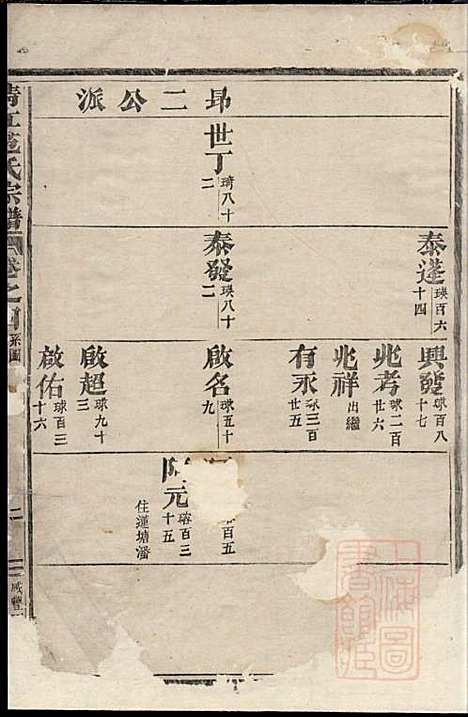 昂二公派
世丁
琦八十二
泰蓬
瑛百六十四
泰發
瑛八十二
興發
球百八十七
兆考
球二百廿六
兆祥
出繼
有永
球三百廿五
啟名
球五十九
啟超
球九十三
啟佑
球百三十六
百五
元
瑢百三十五
住蓮塘潘
氏宗譜
卷之
系圖
二
咸豐
上海圖書館藏